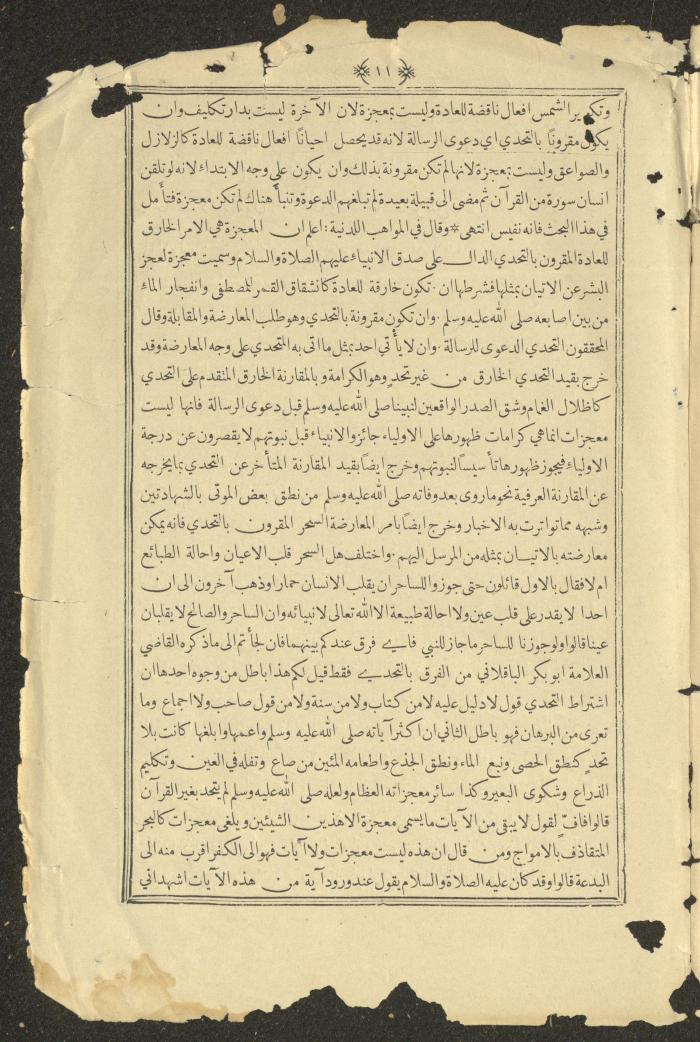 ١١
وتكوير الشمس افعال ناقضة للعادة وليست بمعجزة لان الآخرة ليست بدار تكليف وان
يكون مقرونًا بالتحدي اي دعوى الرسالة لانه قد يحصل احيانًا افعال ناقضة للعادة كالزلازل
والصواعق وليست بمعجزة لانها لم تكن مقرونة بذلك وان يكون على وجه الابتداء لانه لو تلقن
انسان سورة من القرآن ثم مضى الى قبيلة بعيدة لم تبلغهم الدعوة وتنبأ هناك لم تكن معجزة فتأمل
في هذا البحث فانه نفيس انتهى * وقال في المواهب اللدنية : اعلم ان المعجزة هي الامر الخارق
للعادة المقرون بالتحدي الدال على صدق الانبياء عليهم الصلاة والسلام وسميت معجزة لعجز
البشر عن الاتيان بمثلها فشرطها ان . تكون خارقة للعادة كانشقاق القمر للمصطفى وانفجار الماء
من بين اصابعه صلى الله عليه وسلم . وان تكون مقرونة بالتحدي وهو طلب المعارضة والمقابلة وقال
المحققون التحدي الدعوى للرسالة . وان لا يأتي احد بمثل ما اتى به المتحدي على وجه المعارضة وقد
خرج بقيد التحدي الخارق من غير تحد وهو الكرامة و بالمقارنة الخارق المتقدم على التحدي
كاظلال الغمام وشق الصدر الواقعين لنبينا صلى الله عليه وسلم قبل دعوى الرسالة فانها ليست
معجزات انما هي كرامات ظهورها على الاولياء جائز والانبياء قبل نبوتهم لا يقصرون عن درجة
الاولياء فيجوز ظهورها تأسيسًا لنبوتهم وخرج ايضًا بقيد المقارنة المتأخر عن التحدي بما يخرجه
عن المقارنة العرفية نحو ما روى بعد وفاته صلى الله عليه وسلم من نطق بعض الموتى بالشهادتين
وشبهه مما تواترت به الاخبار وخرج ايضًا بامر المعارضة السحر المقرون بالتحدي فانه يمكن
معارضته بالاتيان بمثله من المرسل اليهم . واختلف هل السحر قلب الاعيان واحالة الطبائع
ام لا فقال بالاول قائلون حتى جوزوا للساحر ان يقلب الانسان حمارا وذهب آخرون الى ان
احدا لا يقدر على قلب عين ولا احالة طبيعة الا الله تعالى لانبيائه وان الساحر والصالح لا يقلبان
عينا قالوا ولو جوزنا للساحر ما جاز للنبي فاي فرق عندكم بينهما فان لجأتم الى ما ذكره القاضي
العلامة ابو بكر الباقلاني من الفرق بالتحدي فقط قيل لكم هذا باطل من وجوه احدها ان
اشتراط التحدي قول لا دليل عليه لا من كتاب ولا من سنة ولا من قول صاحب ولا اجماع وما
تعرى من البرهان فهو باطل الثاني ان اكثر آياته صلى الله عليه وسلم واعمها وابلغها كانت بلا
تحد كنطق الحصى ونبع الماء ونطق الجذع واطعامه المئين من صاع وتفله في العين وتكليم
الذراع وشكوى البعير وكذا سائر معجزاته العظام ولعله صلى الله عليه وسلم لم يتحد بغير القرآن
قالوا فافٍّ لقول لا يبقى من الآيات ما يسمى معجزة الا هذين الشيئين ويلغى معجزات كالبحر
المتقاذف بالامواج ومن قال ان هذه ليست معجزات ولا آيات فهو الى الكفر اقرب منه الى
البدعة قالوا وقد كان عليه الصلاة والسلام يقول عند ورود آية من هذه الآيات اشهد اني